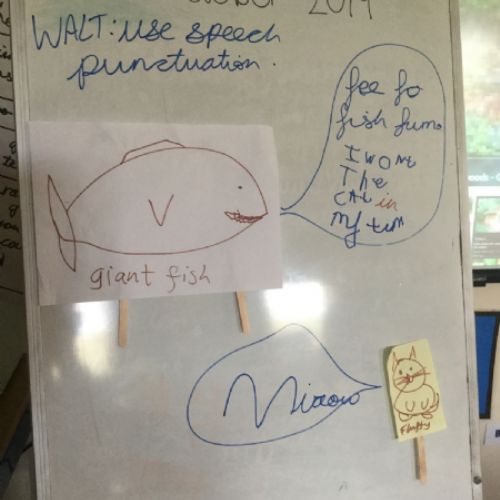 WALT: use speech
punctuation.
fee fo
fish fumo
I wont
The
CAt in
My tum
giant fish
Miaow
Fluffy